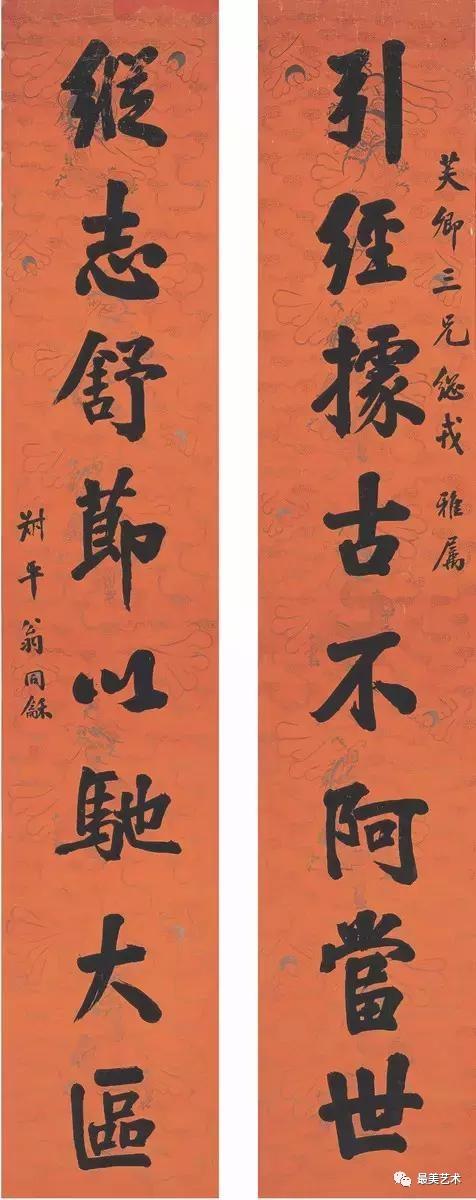 芙卿三兄總戎 雅屬
引經據古不阿當世
縱志舒節以馳大區
叔平翁同龢
最美艺术